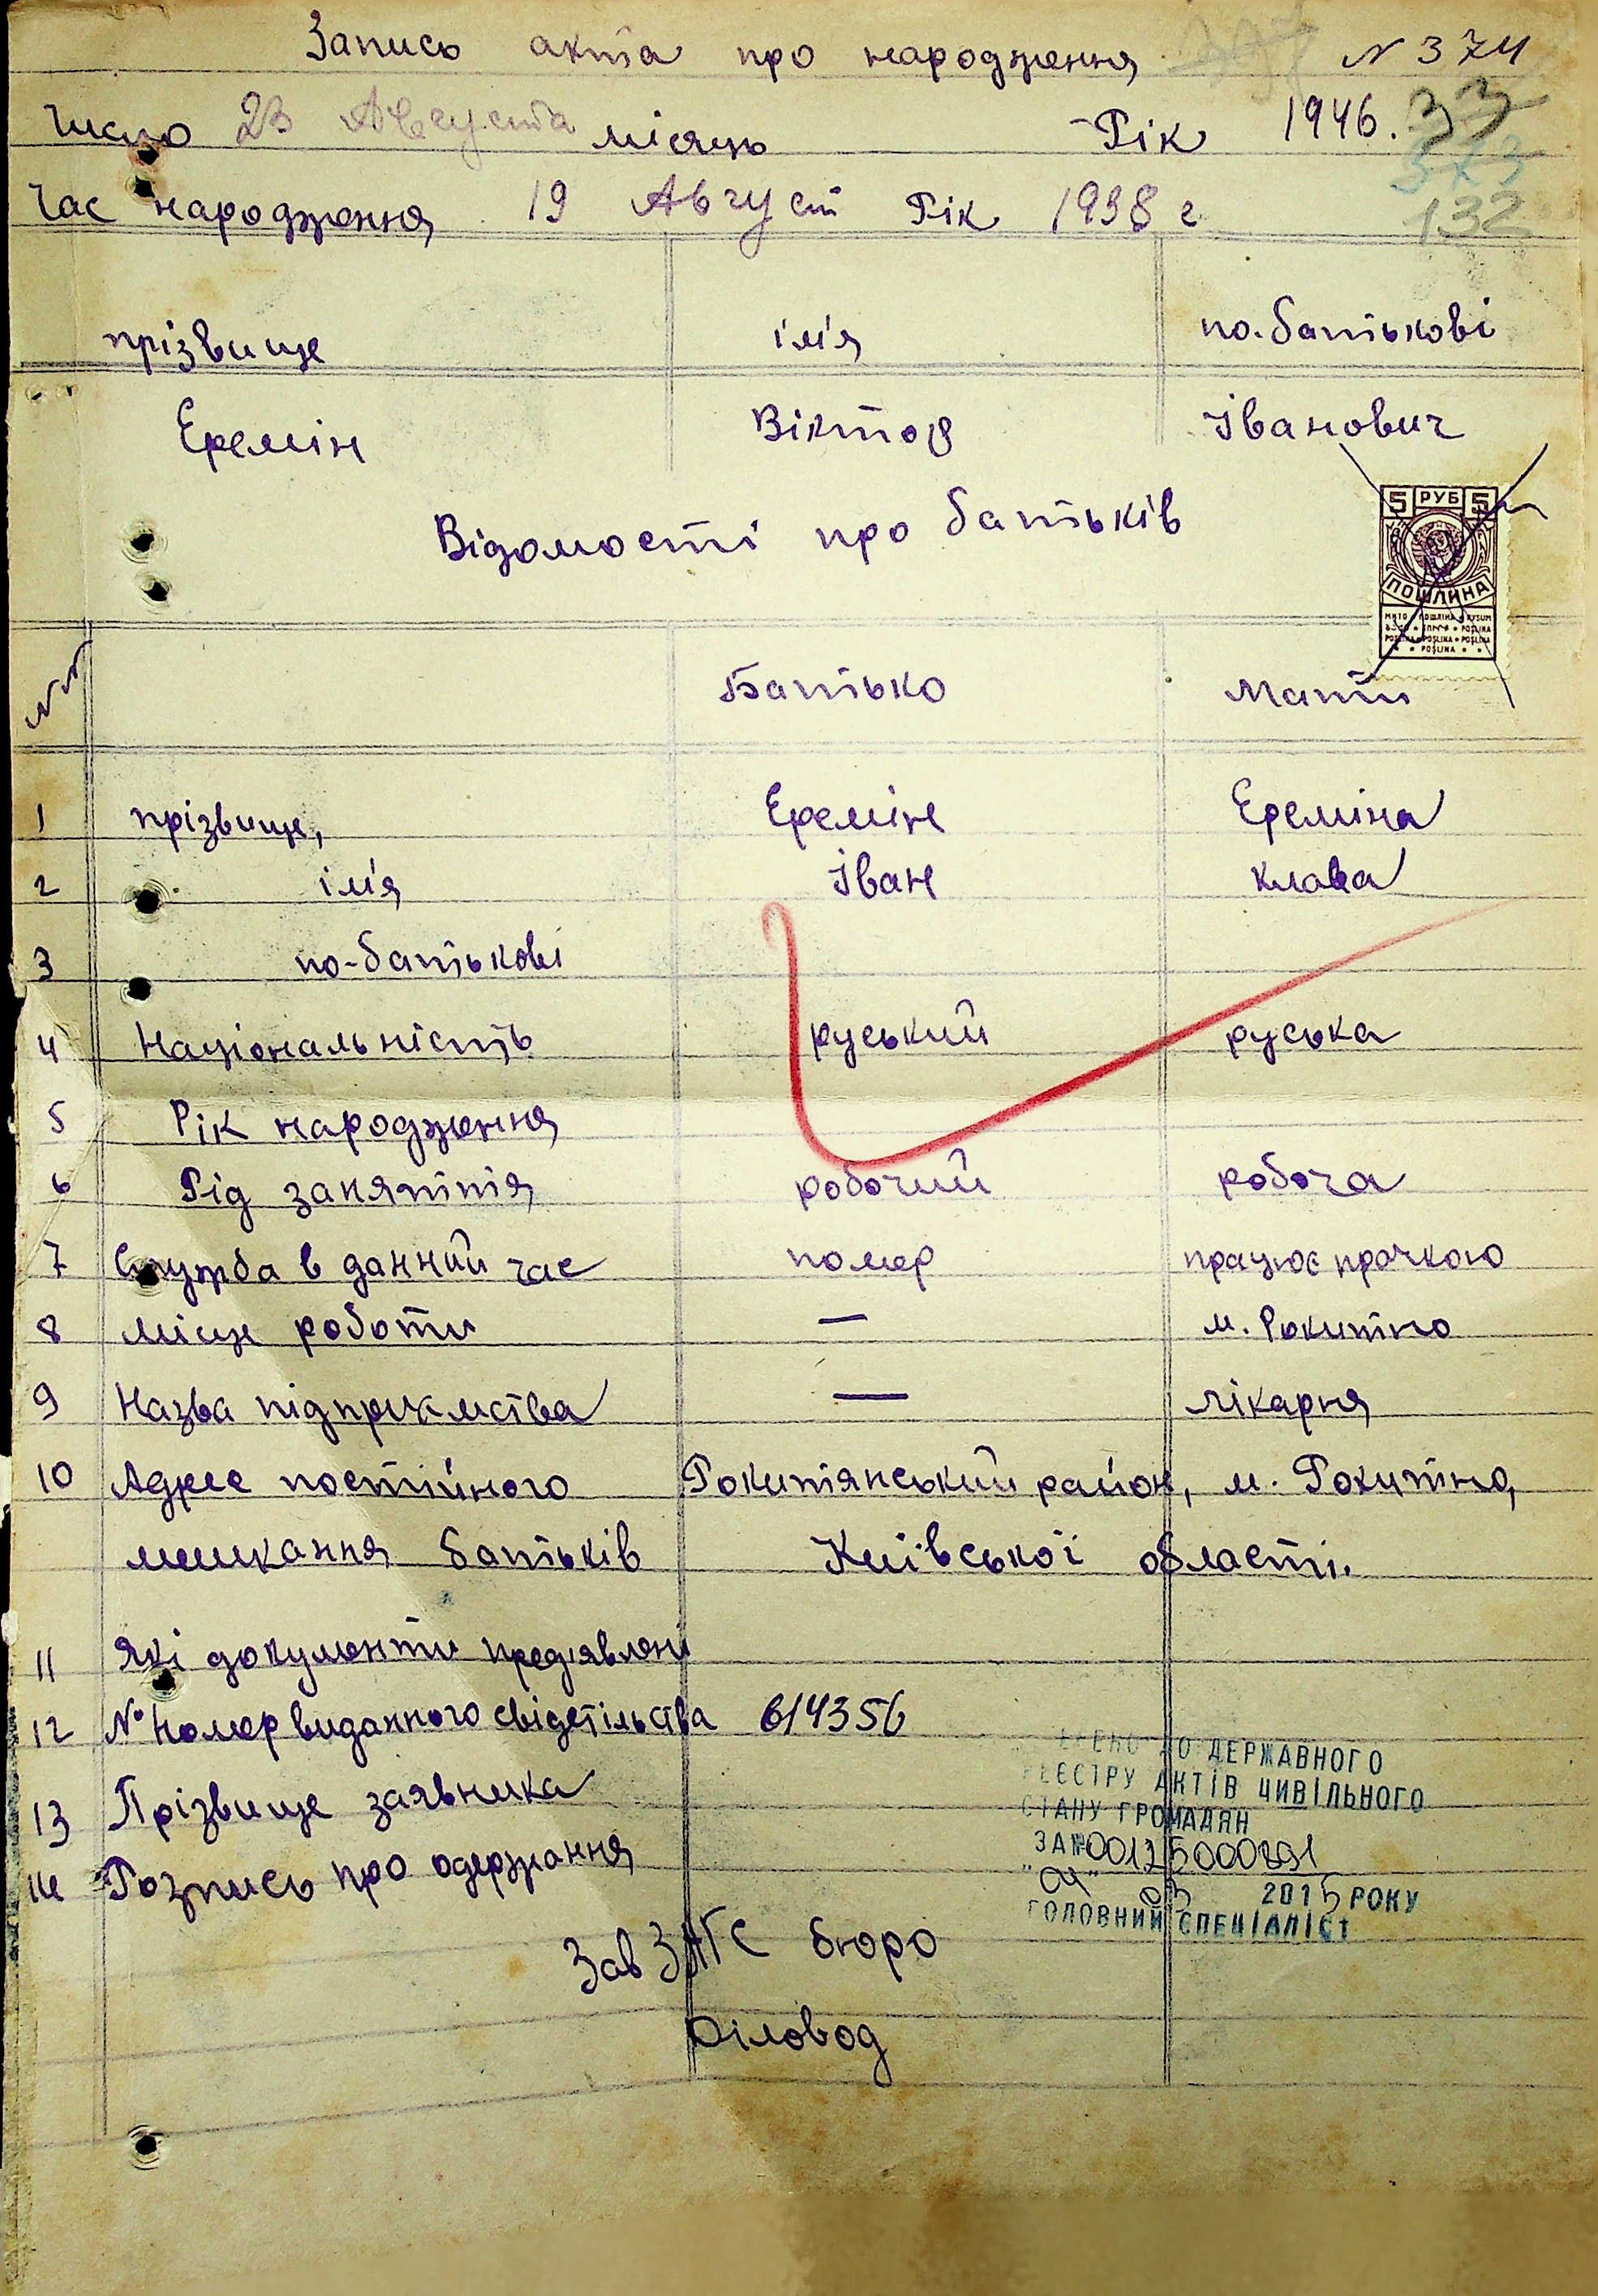 Запись акта про народження N 374
Число 23 Августа місяць Рік 1946. 33
373
Час народження 19 Август Рік 1938 г
132
прізвище ім'я по-батькові
Еремін Віктор Іванович
Відомості про батьків
5 РУБ 5
ПОШЛИНА
NN Батько Мати
1 прізвище, Еремін Ереміна
2 ім'я Іван Клава
3 по-батькові
4 Національність руський руська
5 Рік народження
6 Рід заняття робочий робоча
7 Служба в данний час помер працює прачкою
8 Місце роботи — м. Рокитно
9 Назва підприємства — лікарня
10 Адрес постійного Рокитянський район, м. Рокитно,
мешкання батьків Київської області.
11 Які документи пред'явлені
12 № Номер виданного свідетільства 614356
13 Прізвище заявника
14 Розпись про одержання
ДО ДЕРЖАВНОГО
РЕЄСТРУ АКТІВ ЦИВІЛЬНОГО
СТАНУ ГРОМАДЯН
ЗА №00125000891
2015 РОКУ
ГОЛОВНИЙ СПЕЦІАЛІСТ
Зав ЗАГС бюро
Діловод